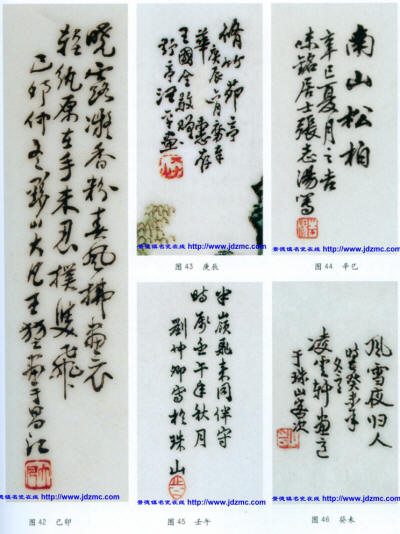 曉露凝香粉春風拂畫衣
輕紈原在手未忍撲雙飛
己卯仲冬 山大兄王 畫于昌江
景德镇名瓷在线 http://www.jdzmc.com
图 42 己卯
脩竹茆亭
庚辰 月
華 惠存
王國全敬贈
畫
景德镇名瓷在线 http://www.jdzmc.com
图 43 庚辰
南山松柏
辛巳夏月之吉
味銘居士張志湯寫
景德镇名瓷在线 http://www.jdzmc.com
图 44 辛巳
半嶺飛來同伴守
時 壬午年秋月
劉仲卿寫於珠山
景德镇名瓷在线 http://www.jdzmc.com
图 45 壬午
風雪夜归人
時在癸未年
凌雲軒画
于珠山客次
景德镇名瓷在线 http://www.jdzmc.com
图 46 癸未